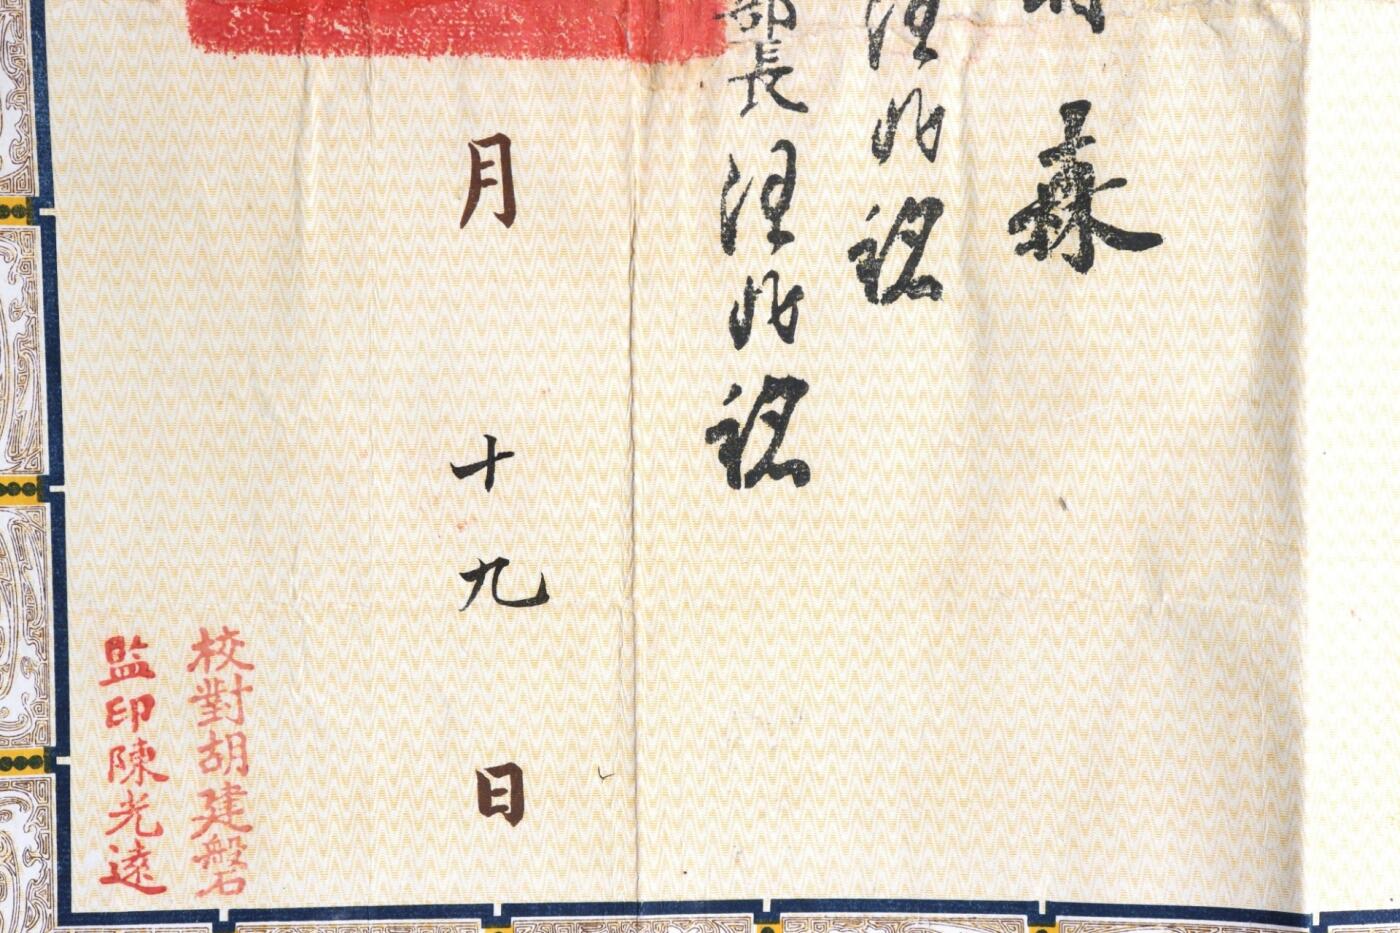 森
汪兆銘
部長汪兆銘
月十九日
校對胡建磐
監印陳光遠